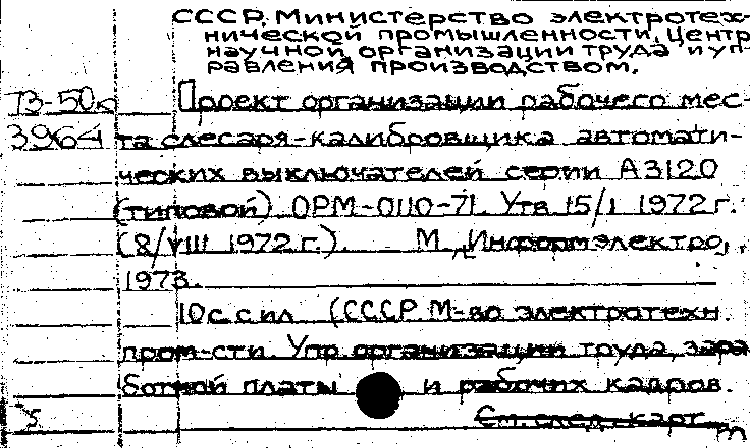 СССР. Министерство электротех-
нической промышленности. Центр
научной организации труда и уп-
равления производством.
73-50к Проект организации рабочего мес-
3964 та слесаря-калибровщика автомати-
ческих выключателей серии А3120
(типовой) ОРМ-0110-71. Утв 15/I 1972 г.
(8/VIII 1972 г.). М., „Информэлектро„,
1973.
10 с. с ил (СССР М-во электротехн.
пром-сти. Упр организации труда, зара
ботной платы и рабочих кадров.
См. след. карт.